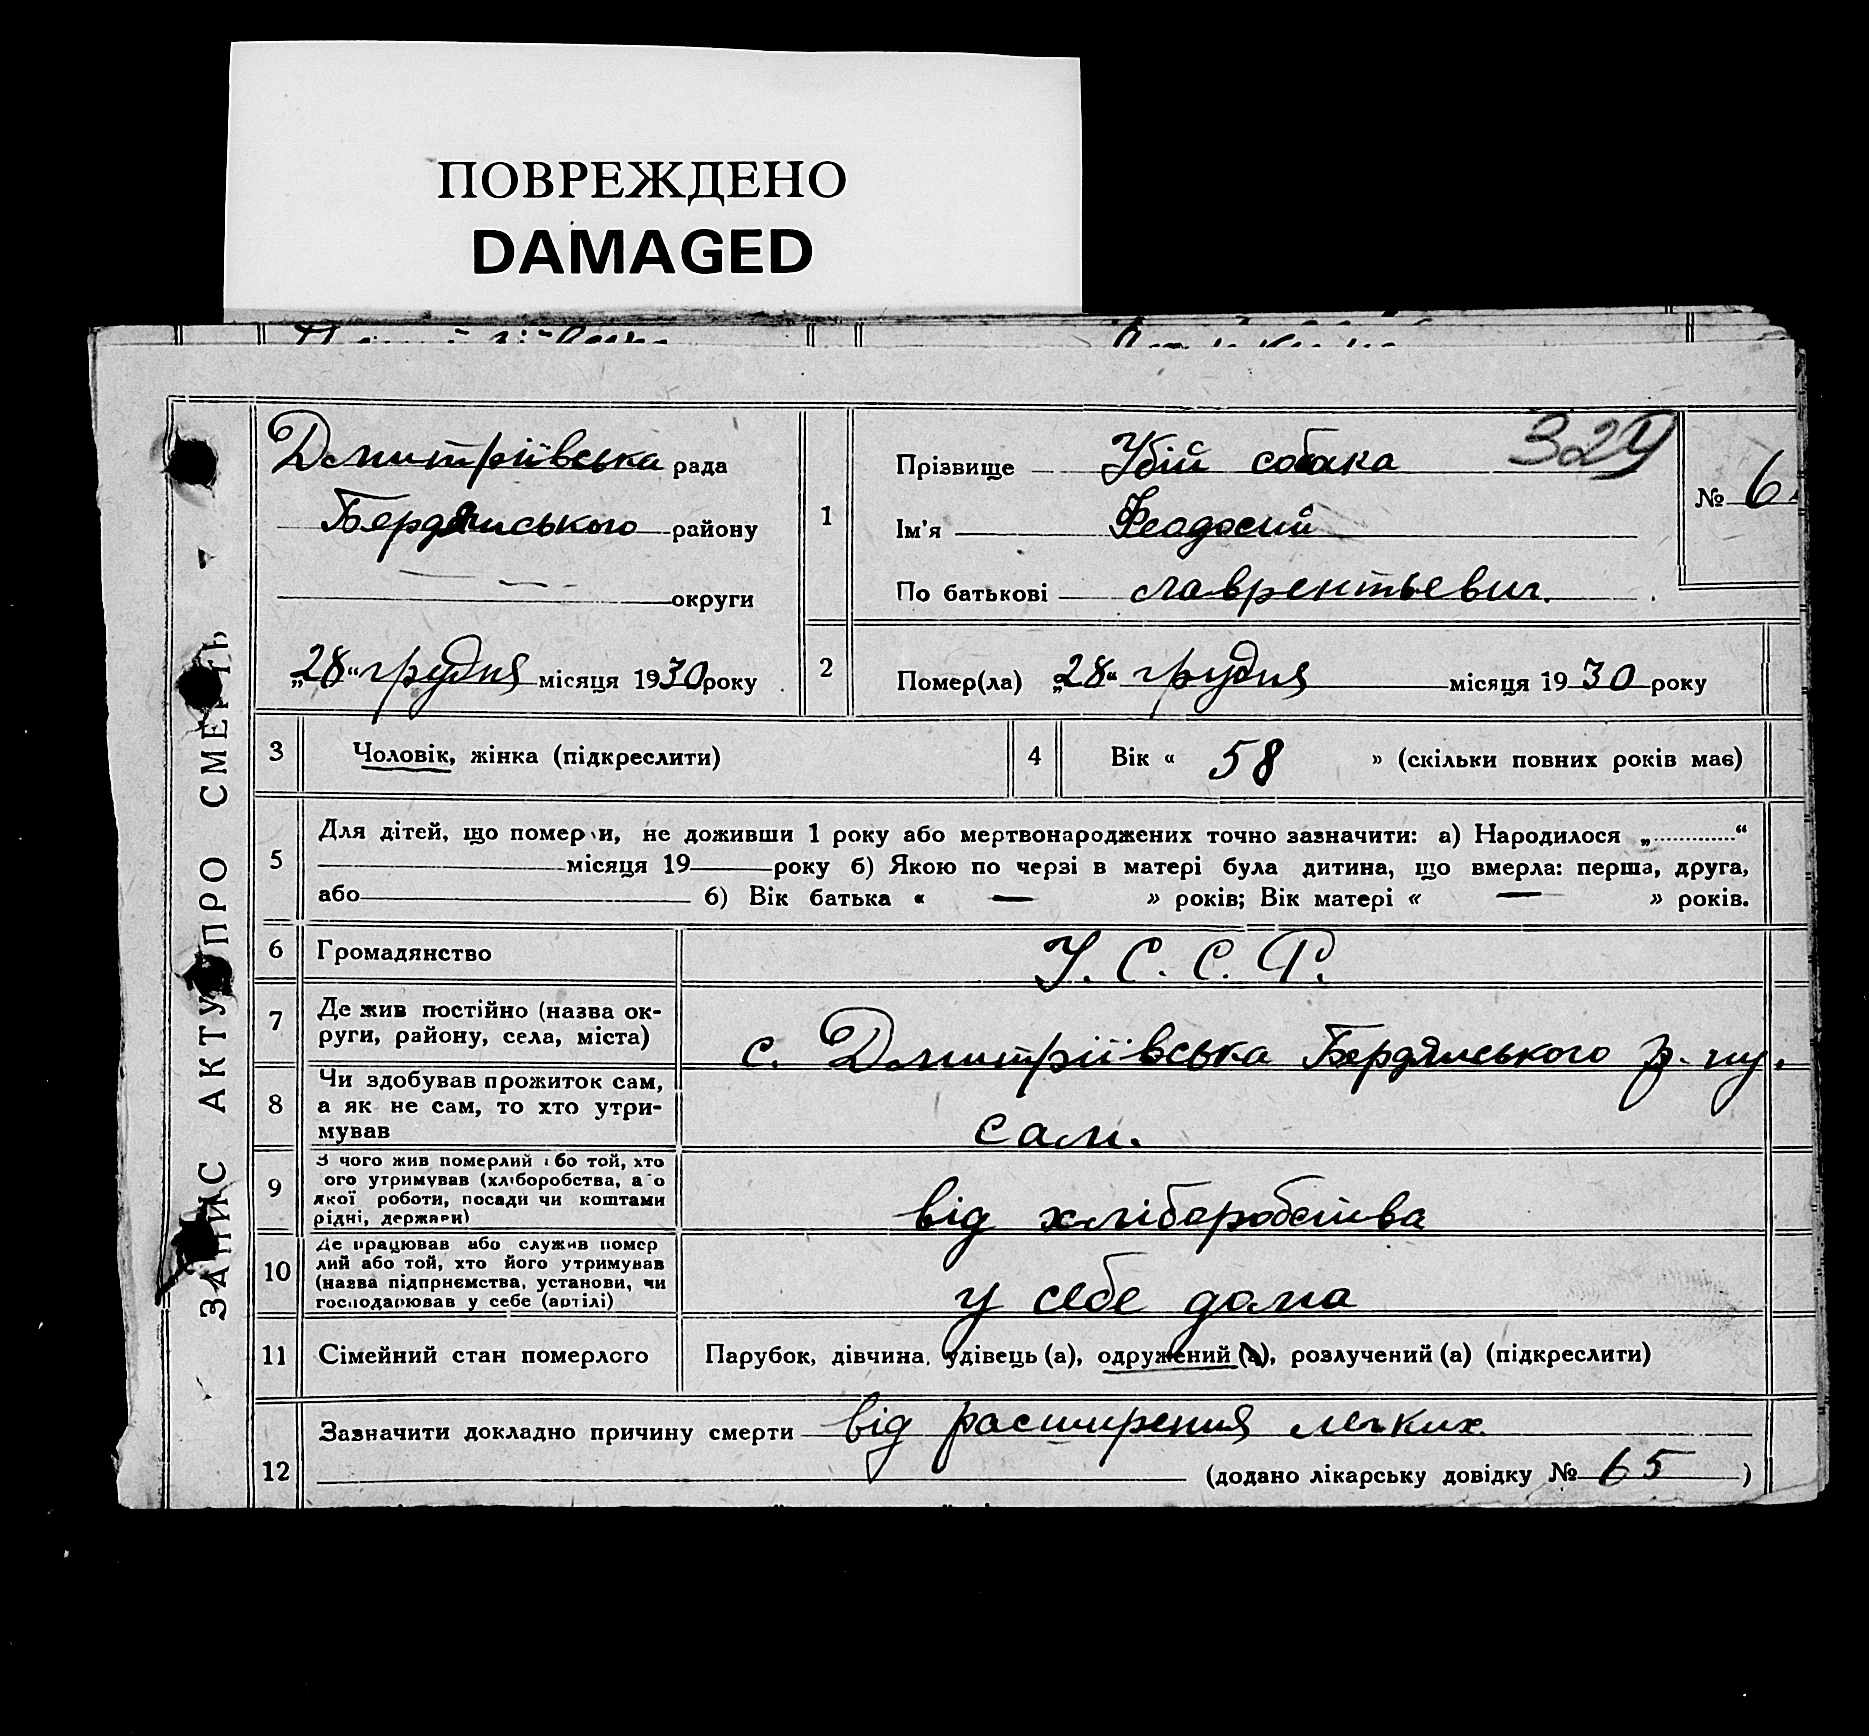 ПОВРЕЖДЕНО
DAMAGED
ЗАПИС АКТУ ПРО СМЕРТЬ
Дмитріївська рада
Бердянського району
округи
„28“ грудня місяця 1930 року
1
Прізвище Убій собака 324
Ім'я Феодосий
По батькові лаврентьевич.
№ 6
2
Помер(ла) „28“ грудня місяця 1930 року
3 Чоловік, жінка (підкреслити)
4 Вік « 58 » (скільки повних років має)
5
Для дітей, що померли, не доживши 1 року або мертвонароджених точно зазначити: а) Народилося „ “
місяця 19 року б) Якою по черзі в матері була дитина, що вмерла: перша, друга,
або б) Вік батька « — » років; Вік матері « — » років.
6 Громадянство У. С. С. Р.
7
Де жив постійно (назва ок-
руги, району, села, міста)
с. Дмитріївська Бердянського р-ну.
8
Чи здобував прожиток сам,
а як не сам, то хто утри-
мував
сам.
9
З чого жив померлий або той, хто
його утримував (хліборобства, або
якої роботи, посади чи коштами
рідні, держави)
від хліборобства
10
Де працював або служив помер
лий або той, хто його утримував
(назва підприємства, установи, чи
господарював у себе (артілі)
у себе дома
11 Сімейний стан померлого Парубок, дівчина, удівець (а), одружений (а), розлучений (а) (підкреслити)
12
Зазначити докладно причину смерти від расширения легких.
(додано лікарську довідку № 65 )